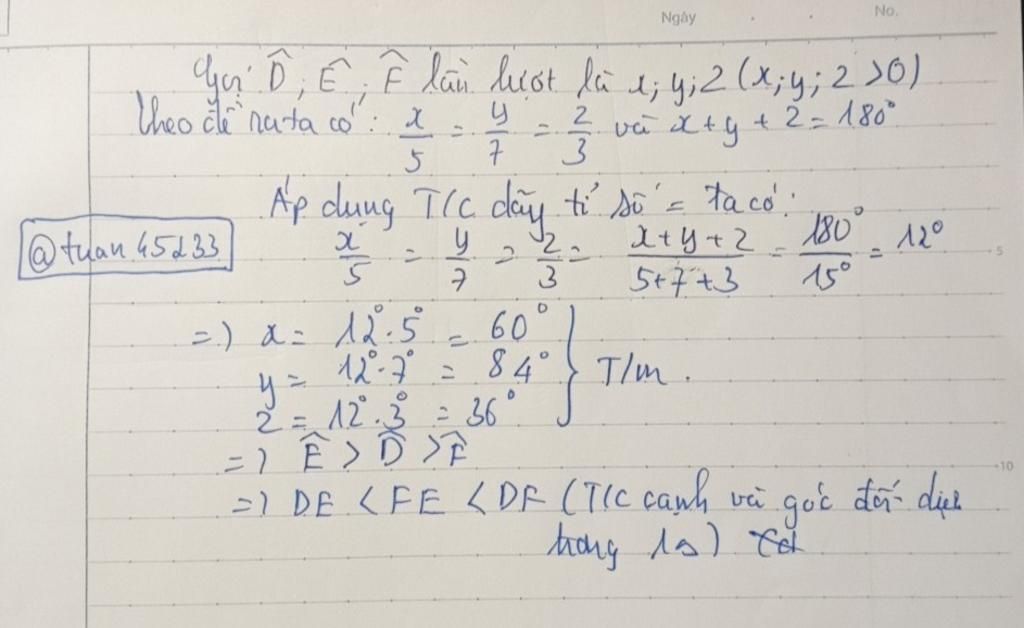 Ngày No.
Gọi D̂; Ê; F̂ lần lượt là x; y; z (x; y; z >0)
Theo đề ra ta có: x/5 = y/7 = z/3 và x+y+z=180°
Áp dụng T/C dãy tỉ số = ta có:
@tuan45d33
x/5 = y/7 = z/3 = (x+y+z)/(5+7+3) = 180°/15° = 12° 5
=) x = 12°.5° = 60°
y = 12°.7° = 84° } T/m.
z = 12°.3° = 36°
=) Ê > D̂ > F̂ 10
=) DE < FE < DF (T/C cạnh và góc đối diện
trong 1Δ)